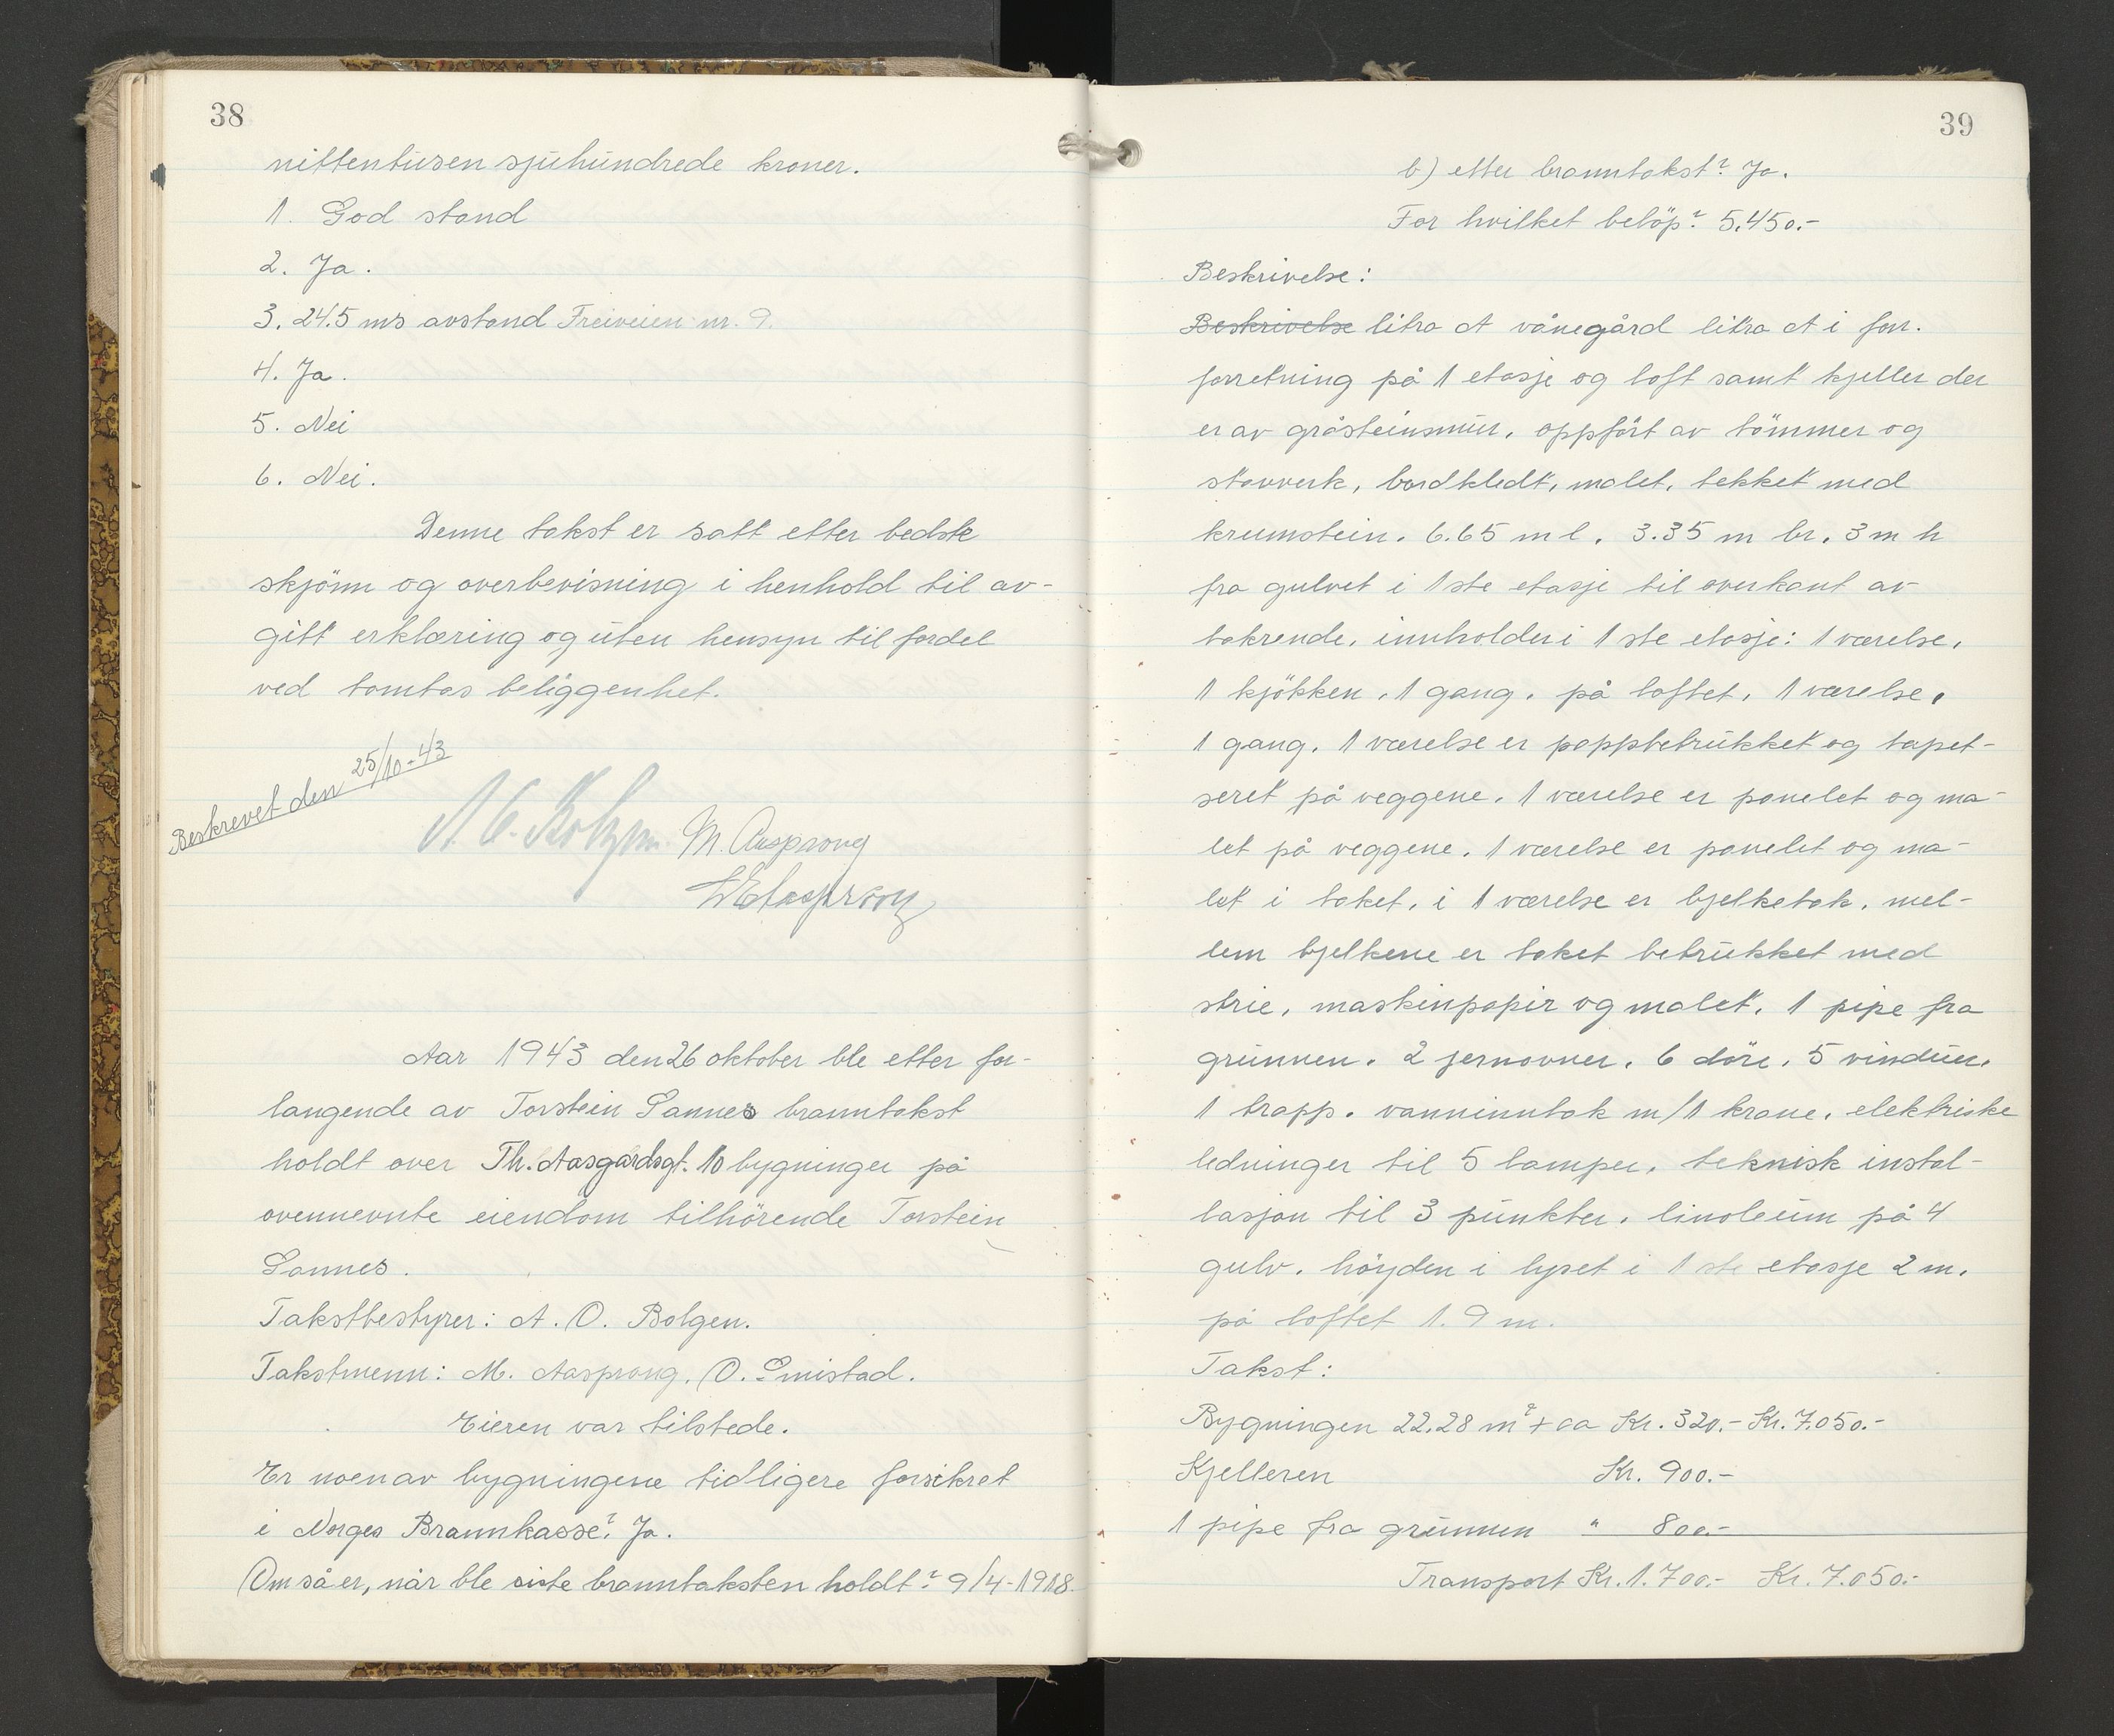 38
nittentusen sjuhundrede kroner.
1. God stand
2. Ja.
3. 24.5 ms avstand Freiveien nr. 9.
4. Ja.
5. Nei
6. Nei.
Denne takst er satt etter bedste
skjönn og overbevisning i henhold til av-
gitt erklæring og uten hensyn til fordel
ved tomtas beliggenhet.
Beskrevet den 25/10-43
M. Aasprong
Aar 1943 den 26 oktober ble etter for-
langende av Torstein Sannes branntakst
holdt over Th. Aasgardsgt. 10 bygninger på
ovennevnte eiendom tilhörende Torstein
Sannes.
Takstbestyrer: A. O. Bolgen.
Takstmenn: M. Aasprong. O. Smistad.
Eieren var tilstede.
Er noen av bygningene tidligere forsikret
i Norges Brannkasse? Ja.
Om så er, når ble siste branntaksten holdt? 9/4-1918.
39
b) etter branntakst? Ja.
For hvilket belöp? 5.450.-
Beskrivelse:
Beskrivelse litra A vånegård litra A i forr.
forretning på 1 etasje og loft samt kjeller der
er av gråsteinsmur, oppfört av tömmer og
stavverk, bordkledt, malet, tekket med
krumstein. 6.65 m l. 3.35 m br. 3 m h
fra gulvet i 1ste etasje til overkant av
takrende, innholder i 1ste etasje: 1 værelse,
1 kjökken, 1 gang, på loftet, 1 værelse,
1 gang. 1 værelse er pappbetrukket og tapet-
seret på veggene. 1 værelse er panelet og ma-
let på veggene. 1 værelse er panelet og ma-
let i taket. i 1 værelse er bjelketak. mel-
lem bjelkene er taket betrukket med
strie, maskinpapir og malet. 1 pipe fra
grunnen. 2 jernovner. 6 döre. 5 vinduer.
1 trapp. vanninntak m/1 krane. elektriske
ledninger til 5 lamper. teknisk instal-
lasjon til 3 punkter. linoleum på 4
gulv. höyden i lyset i 1ste etasje 2 m.
på loftet 1.9 m.
Takst:
Bygningen 22.28 m² + ca Kr. 320.- Kr. 7.050.-
Kjelleren Kr. 900.-
1 pipe fra grunnen " 800.-
Transport Kr. 1.700.- Kr. 7.050.-